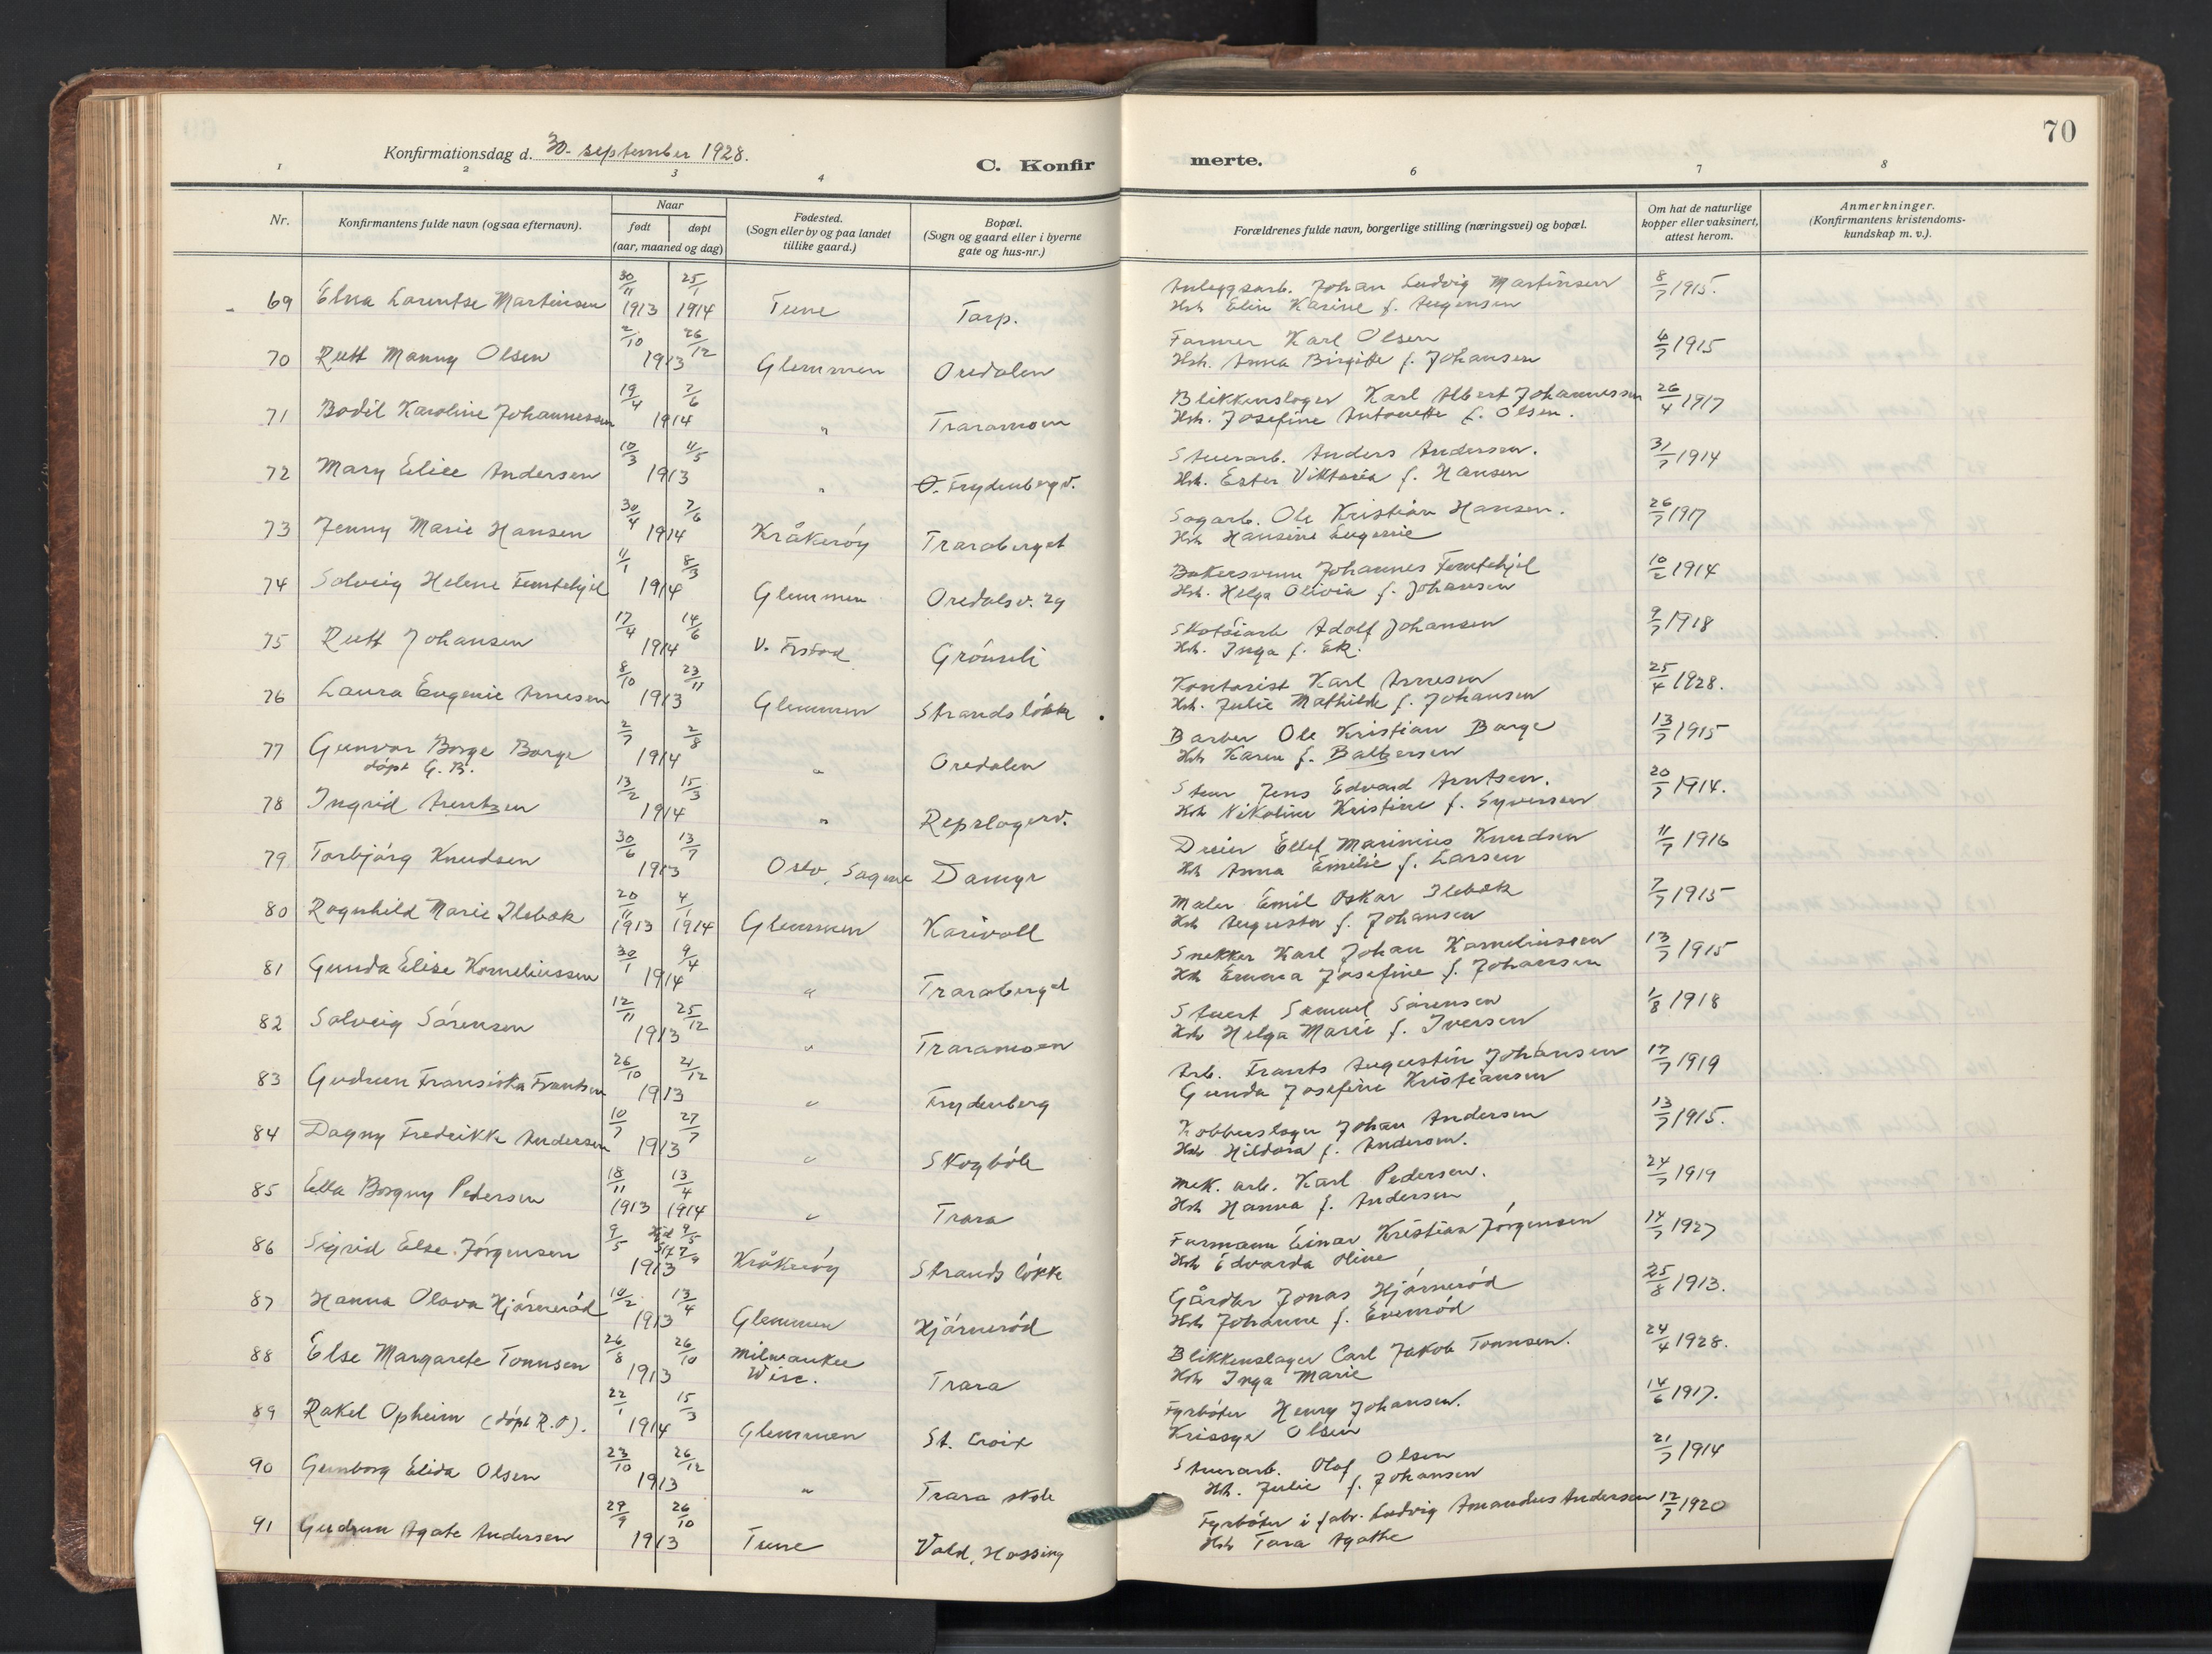 70
Konfirmationsdag d. 30. september 1928.
C. Konfirmerte.
1 2 3 4 6 7 8
Nr.
Konfirmantens fulde navn (ogsaa efternavn).
Naar
født døpt
(aar, maaned og dag)
Fødested.
(Sogn eller by og paa landet
tillike gaard.)
Bopæl.
(Sogn og gaard eller i byerne
gate og hus-nr.)
Forældrenes fulde navn, borgerlige stilling (næringsvei) og bopæl.
Om hat de naturlige
kopper eller vaksinert,
attest herom.
Anmerkninger.
(Konfirmantens kristendoms-
kundskap m. v.).
69 Elna Lorentse Martinsen 30/11 1913 25/1 1914 Tune Torp. Anleggsarb. Johan Ludvig Martinsen 8/7 1915.
Hst. Elin Karine f. Jørgensen
70 Ruth Manny Olsen 2/10 26/12 1913 Glemmen Oredalen Farmer Karl Olsen 6/7 1915
Hst. Anna Birgitte f. Johansen
71 Bodil Karoline Johannessen 19/4 7/6 1914 " Traramoen Blikkenslager Karl Albert Johannessen 26/4 1917
Hst. Josefine Antonette f. Olsen.
72 Mary Elise Andersen 10/3 4/5 1913 " O. Frydenbergv. Stuerarb. Anders Andersen. 31/7 1914
Hst. Ester Viktoria f. Hansen
73 Jenny Marie Hansen 30/4 7/6 1914 Kråkerøy Traraberget Sagarb. Ole Kristian Hansen. 26/7 1917
Hst. Hansine Eugenie
74 Solveig Helene Femtehjel 11/1 8/3 1914 Glemmen Oredalsv. 29 Bakersvenn Johannes Femtehjel 10/2 1914
Hst. Helga Olivia f. Johansen
75 Ruth Johansen 17/4 14/6 1914 V. Fr.stad Grönli Skotöiarb Adolf Johansen 9/7 1918
Hst. Inga f. Ek.
76 Laura Eugenie Arnesen 8/10 23/11 1913 Glemmen Strandsløkke Kontorist Karl Arnesen 25/4 1928.
Hst. Julie Mathilde f. Johansen
77 Gunvor Borge Borge 2/7 2/8 1914 " Oredalen Barber Ole Kristian Borge 13/7 1915
döpt G. B. Hst Karen f. Baltzersen
78 Ingrid Arentzen 13/2 15/3 1914 " Repslagerv. Stuer Jens Edvard Arntsen. 20/7 1914.
Hst Nikoline Kristine f. Syversen
79 Torbjörg Knudsen 30/6 13/7 1913 Oslo, Sagene Dammyr Dreier Ellef Marinius Knudsen 11/7 1916
Hst Anna Emilie f. Larsen
80 Ragnhild Marie Ilebæk 20/11 1913 4/1 1914 Glemmen Karivoll Maler Emil Oskar Ilebæk 7/7 1915
Hst Augusta f. Johansen
81 Gunda Elise Korneliussen 30/1 9/4 1914 " Traraberget Snekker Karl Johan Korneliussen 13/7 1915
Hst Emma Josefine f. Johansen
82 Solveig Sörensen 12/11 25/12 1913 " Traramoen Stuert Samuel Sörensen 1/8 1918
Hst Helga Marie f. Iversen
83 Gudrun Fransiska Frantsen 26/10 21/12 1913 " Frydenberg Arb. Frants Augustin Johansen 17/7 1919
Gunda Josefine Kristiansen
84 Dagny Fredrikke Andersen 10/7 27/7 1913 " Skogböle Kobberslager Johan Andersen 13/7 1915.
Hst Hildora f. Andersen.
85 Ella Borgny Pedersen 18/11 1913 13/4 1914 " Trara Mek. arb. Karl Pedersen. 24/7 1919
Hst Hanna f. Andersen
86 Sigrid Else Jörgensen 9/5 9/5 7/9 1913 Kråkeröy Strandsløkke Formann Einar Kristian Jörgensen 14/7 1927
Hst Edvarda Oline
87 Hanna Olava Hjörneröd 10/2 13/4 1913 Glemmen Hjörneröd Gårdbr Jonas Hjörneröd 25/8 1913.
Hst Johanne f. Evenröd
88 Else Margarete Tonnsen 26/8 26/10 1913 Milwaukee Trara Blikkenslager Carl Jakob Tonnsen. 24/4 1928.
Wisc. Hst Inga Marie
89 Rakel Opheim (döpt R. O). 22/1 15/3 1914 Glemmen St. Croix Fyrböter Henry Johansen. 14/6 1917.
Olsen
90 Gunborg Elida Olsen 23/10 26/12 1913 " Trara skole Stuerarb. Olaf Olsen 21/7 1914
Hst. Julie f. Johansen
91 Gudrun Agate Andersen 29/9 26/10 1913 Tune Vald. Hassing Fyrböter i fabr. Ludvig Amandus Andersen 12/7 1920
Hst Tora Agathe